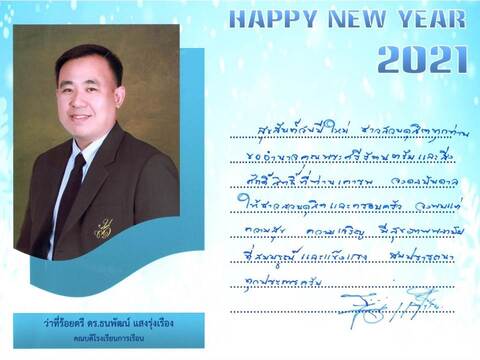 HAPPY NEW YEAR
2021
สุขสันต์วันปีใหม่ ชาวสวนดุสิตทุกท่าน
ขออำนาจคุณพระศรีรัตนตรัยและสิ่ง
ศักดิ์สิทธิ์ที่ท่านเคารพ จงดลบันดาล
ให้ชาวสวนดุสิตและครอบครัว จงพบแต่
ความสุข ความเจริญ มีสุขภาพพลานามัย
ที่สมบูรณ์และแข็งแรง สมปรารถนา
ทุกประการครับ
ว่าที่ร้อยตรี ดร.ธนพัฒน์ แสงรุ่งเรือง
คณบดีโรงเรียนการเรือน